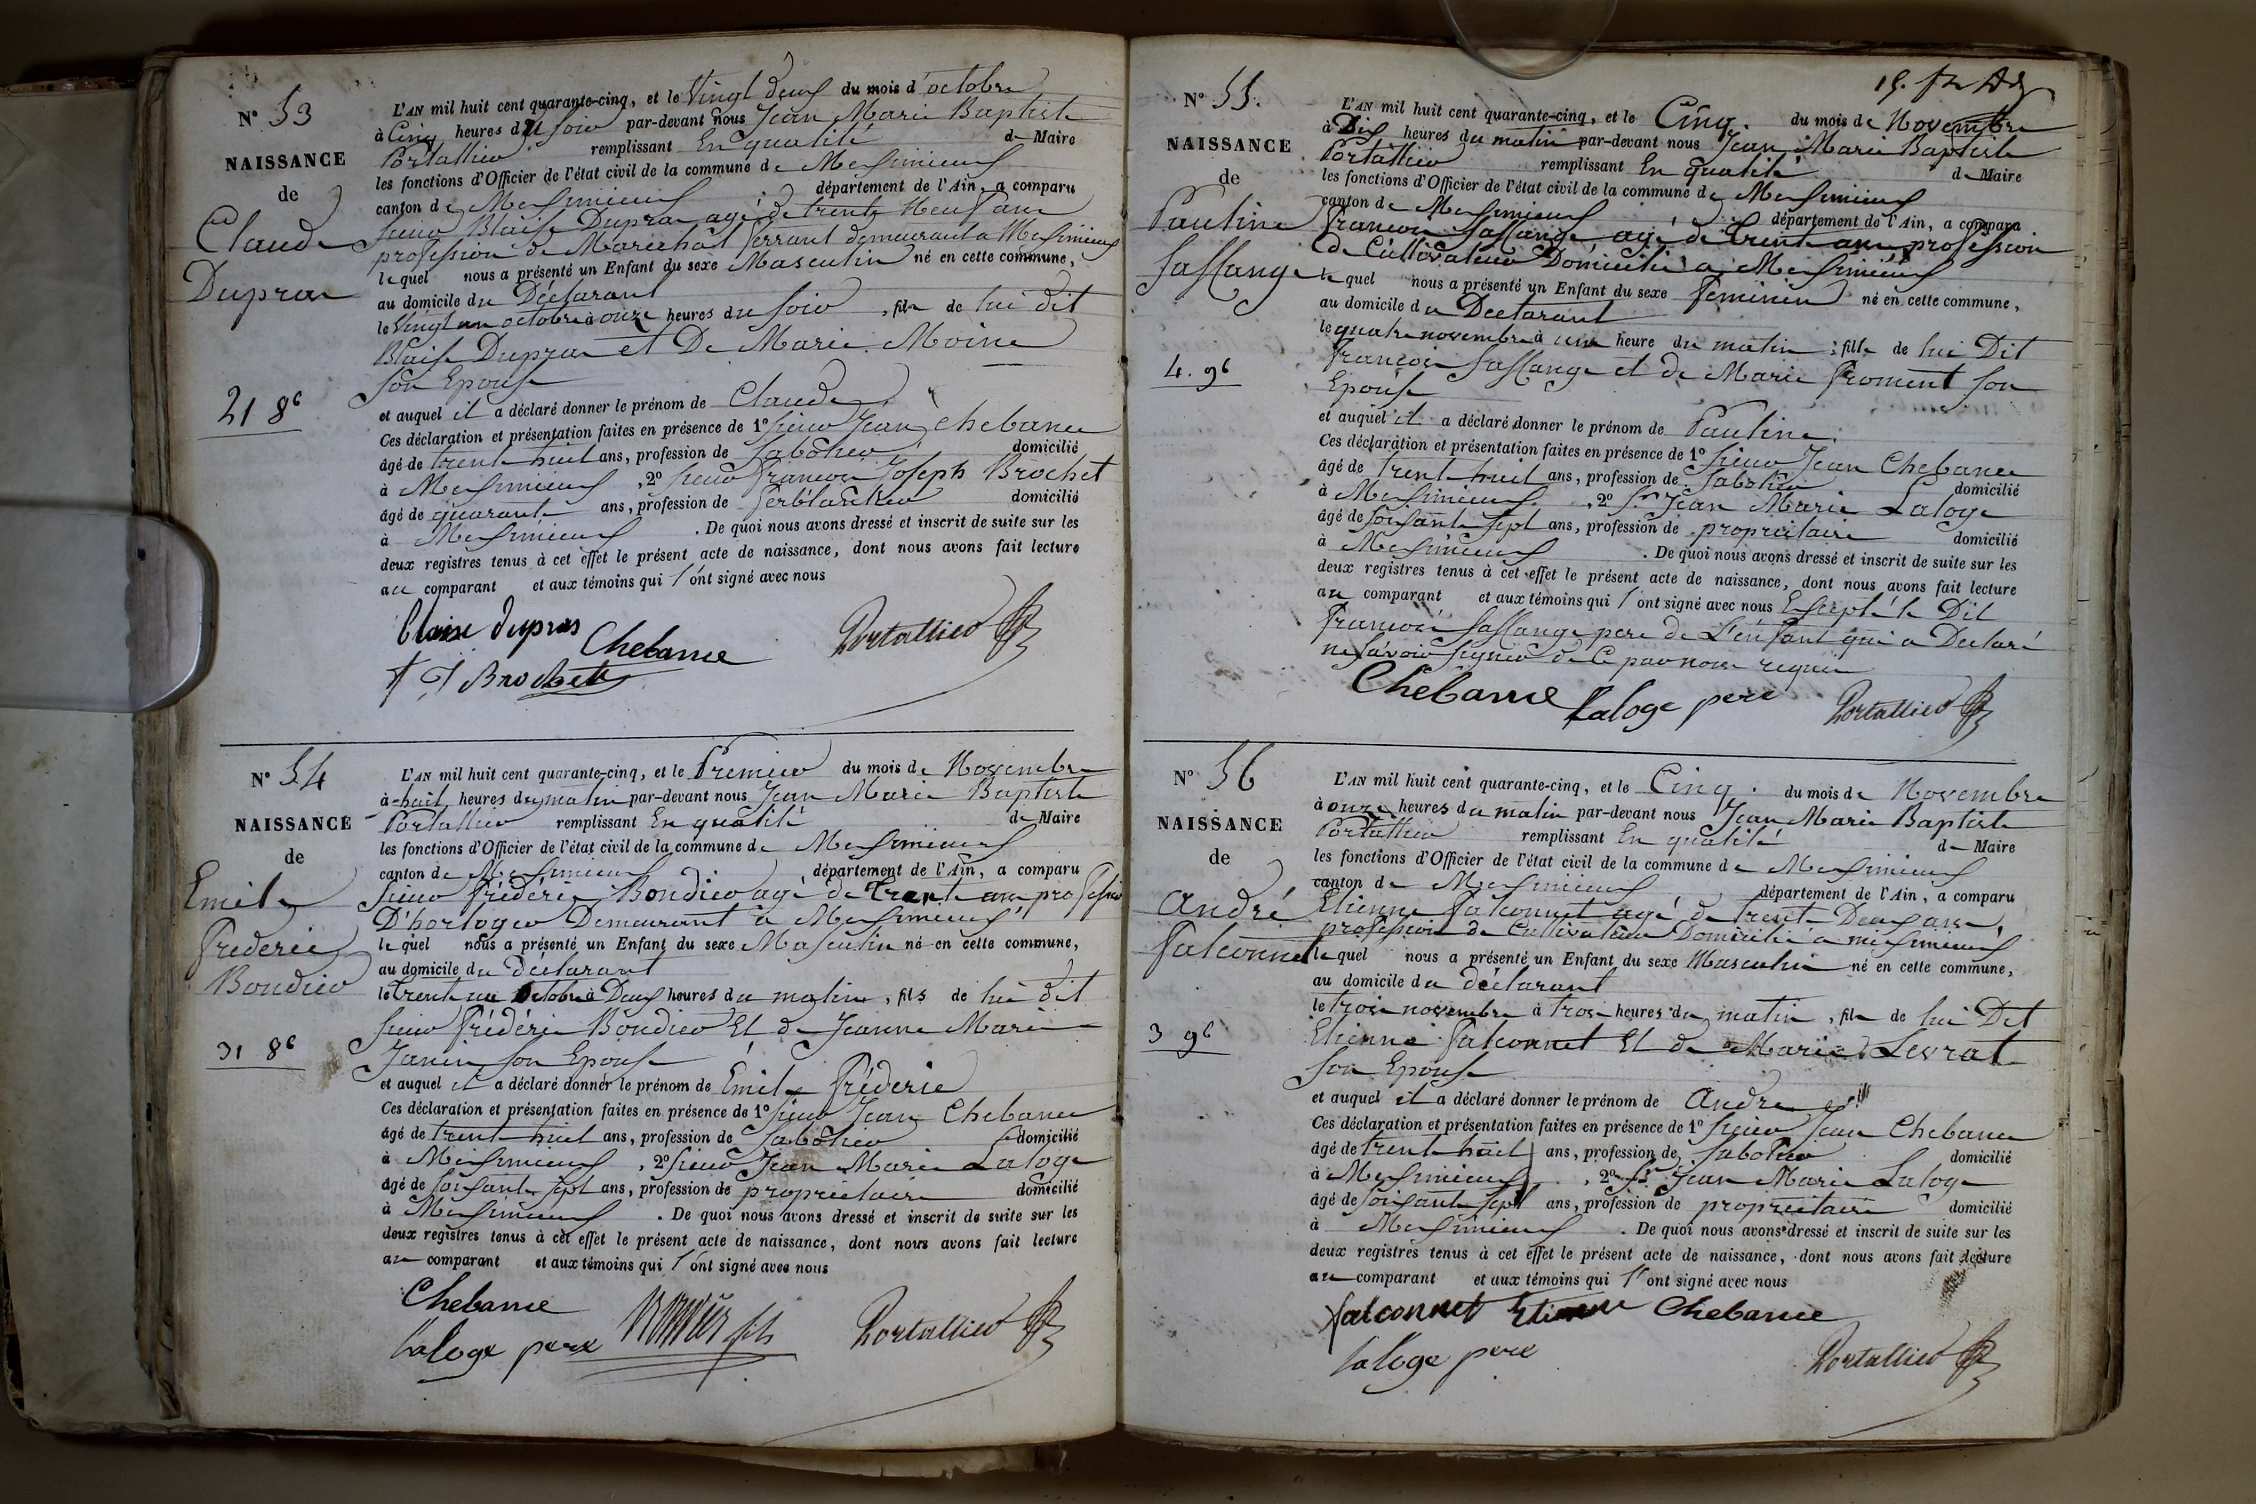 N° 53
NAISSANCE
de
Claude
Dupras
21 8e
L'AN mil huit cent quarante-cinq, et le Vingt deux du mois d'octobre
à Cinq heures du soir par-devant nous Jean Marie Baptiste
Portallier remplissant En qualité de Maire
les fonctions d'Officier de l'état civil de la commune de Meximieux
canton de Meximieux département de l'Ain, a comparu
sieur Blaise Dupras agé de trente Neuf ans
profession de Marechal ferrant demeurant a Meximieux
lequel nous a présenté un Enfant du sexe Masculin né en cette commune,
au domicile du Déclarant
le Vingt un octobre à onze heures du soir, fils de lui dit
Blaise Dupras et De Marie Moine
son Epouse
et auquel il a déclaré donner le prénom de Claude
Ces déclaration et présentation faites en présence de 1° sieur Jean Chebance
âgé de trente huit ans, profession de Sabotier domicilié
à Meximieux, 2° sieur François Joseph Brochet
âgé de quarante ans, profession de ferblantier domicilié
à Meximieux. De quoi nous avons dressé et inscrit de suite sur les
deux registres tenus à cet effet le présent acte de naissance, dont nous avons fait lecture
au comparant et aux témoins qui l'ont signé avec nous
Blaise dupras Chebance Portallier
f J Brochet
N° 54
NAISSANCE
de
Emile
frederic
Bondier
31 8e
L'AN mil huit cent quarante-cinq, et le Premier du mois de Novembre
à huit heures du matin par-devant nous Jean Marie Baptiste
Portallier remplissant En qualité de Maire
les fonctions d'Officier de l'état civil de la commune de Meximieux
canton de Meximieux département de l'Ain, a comparu
sieur frédéric Bondier agé de trente ans profession
D'horloger Demeurant a Meximieux
lequel nous a présenté un Enfant du sexe Masculin né en cette commune,
au domicile du déclarant
le trente un octobre à Deux heures du matin, fils de lui dit
sieur frédéric Bondier Et de Jeanne Marie
Janin son Epouse
et auquel il a déclaré donner le prénom de Emile fréderic
Ces déclaration et présentation faites en présence de 1° sieur Jean Chebance
âgé de trente huit ans, profession de Sabotier domicilié
à Meximieux, 2° sieur Jean Marie Laloge
âgé de soixante sept ans, profession de proprietaire domicilié
à Meximieux. De quoi nous avons dressé et inscrit de suite sur les
deux registres tenus à cet effet le présent acte de naissance, dont nous avons fait lecture
au comparant et aux témoins qui l'ont signé avec nous
Chebance
Laloge pere Portallier
N° 55.
NAISSANCE
de
Pauline
Sallange
4. 9e
L'AN mil huit cent quarante-cinq, et le Cinq. du mois de Novembre
à Dix heures du matin par-devant nous Jean Marie Baptiste
Portallier remplissant En qualité de Maire
les fonctions d'Officier de l'état civil de la commune de Meximieux
canton de Meximieux département de l'Ain, a comparu
françois Sallange agé de trente ans profession
de Cultivateur Domicilié a Meximieux
lequel nous a présenté un Enfant du sexe feminin né en cette commune,
au domicile du Declarant
le quatre novembre à une heure du matin; fille de lui Dit
françois Sallange et de Marie froment son
Epouse
et auquel il a déclaré donner le prénom de Pauline.
Ces déclaration et présentation faites en présence de 1° sieur Jean Chebance
âgé de trente huit ans, profession de Sabotier domicilié
à Meximieux, 2° Sr Jean Marie Laloge
âgé de soixante sept ans, profession de proprietaire domicilié
à Meximieux. De quoi nous avons dressé et inscrit de suite sur les
deux registres tenus à cet effet le présent acte de naissance, dont nous avons fait lecture
au comparant et aux témoins qui l'ont signé avec nous Excepté le Dit
françois Sallange pere de L'enfant qui a Declaré
ne savoir signer de Ce par nous requis
Chebance Laloge pere Portallier
N° 56
NAISSANCE
de
André
Falconnet
3 9e
L'AN mil huit cent quarante-cinq, et le Cinq. du mois de Novembre
à onze heures du matin par-devant nous Jean Marie Baptiste
Portallier remplissant En qualité de Maire
les fonctions d'Officier de l'état civil de la commune de Meximieux
canton de Meximieux département de l'Ain, a comparu
Etienne falconnet agé de trente Deux ans,
profession de Cultivateur Domicilié a Meximieux
lequel nous a présenté un Enfant du sexe Masculin né en cette commune,
au domicile du déclarant
le trois novembre à trois heures du matin, fils de lui Dit
Etienne falconnet Et de Marie Levrat
son Epouse
et auquel il a déclaré donner le prénom de André
Ces déclaration et présentation faites en présence de 1° sieur Jean Chebance
âgé de trente huit ans, profession de Sabotier domicilié
à Meximieux, 2° Sr Jean Marie Laloge
âgé de soixante sept ans, profession de proprietaire domicilié
à Meximieux. De quoi nous avons dressé et inscrit de suite sur les
deux registres tenus à cet effet le présent acte de naissance, dont nous avons fait lecture
au comparant et aux témoins qui l'ont signé avec nous
falconnet Etienne Chebance
Laloge pere Portallier